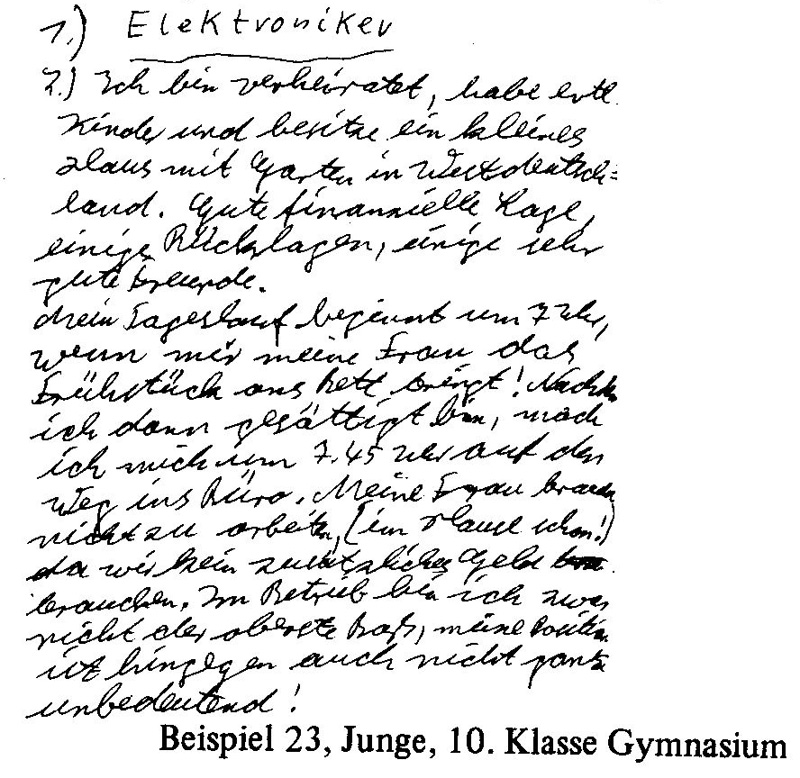 1.) Elektroniker
2.) Ich bin verheiratet, habe evtl.
Kinder und besitze ein kleines
Haus mit Garten in Westdeutsch=
land. Gute finanzielle Lage,
einige Rücklagen, einige sehr
gute Freunde.
Mein Tageslauf beginnt um 7 Uhr,
wenn mir meine Frau das
Frühstück ans Bett bringt! Nachdem
ich dann gesättigt bin, mach
ich mich um 7.45 Uhr auf den
Weg ins Büro. Meine Frau braucht
nicht zu arbeiten, (im Hause schon!)
da wir kein zusätzliches Geld
brauchen. Im Betrieb bin ich zwar
nicht der oberste Boß, meine Position
ist hingegen auch nicht ganz
unbedeutend!
Beispiel 23, Junge, 10. Klasse Gymnasium